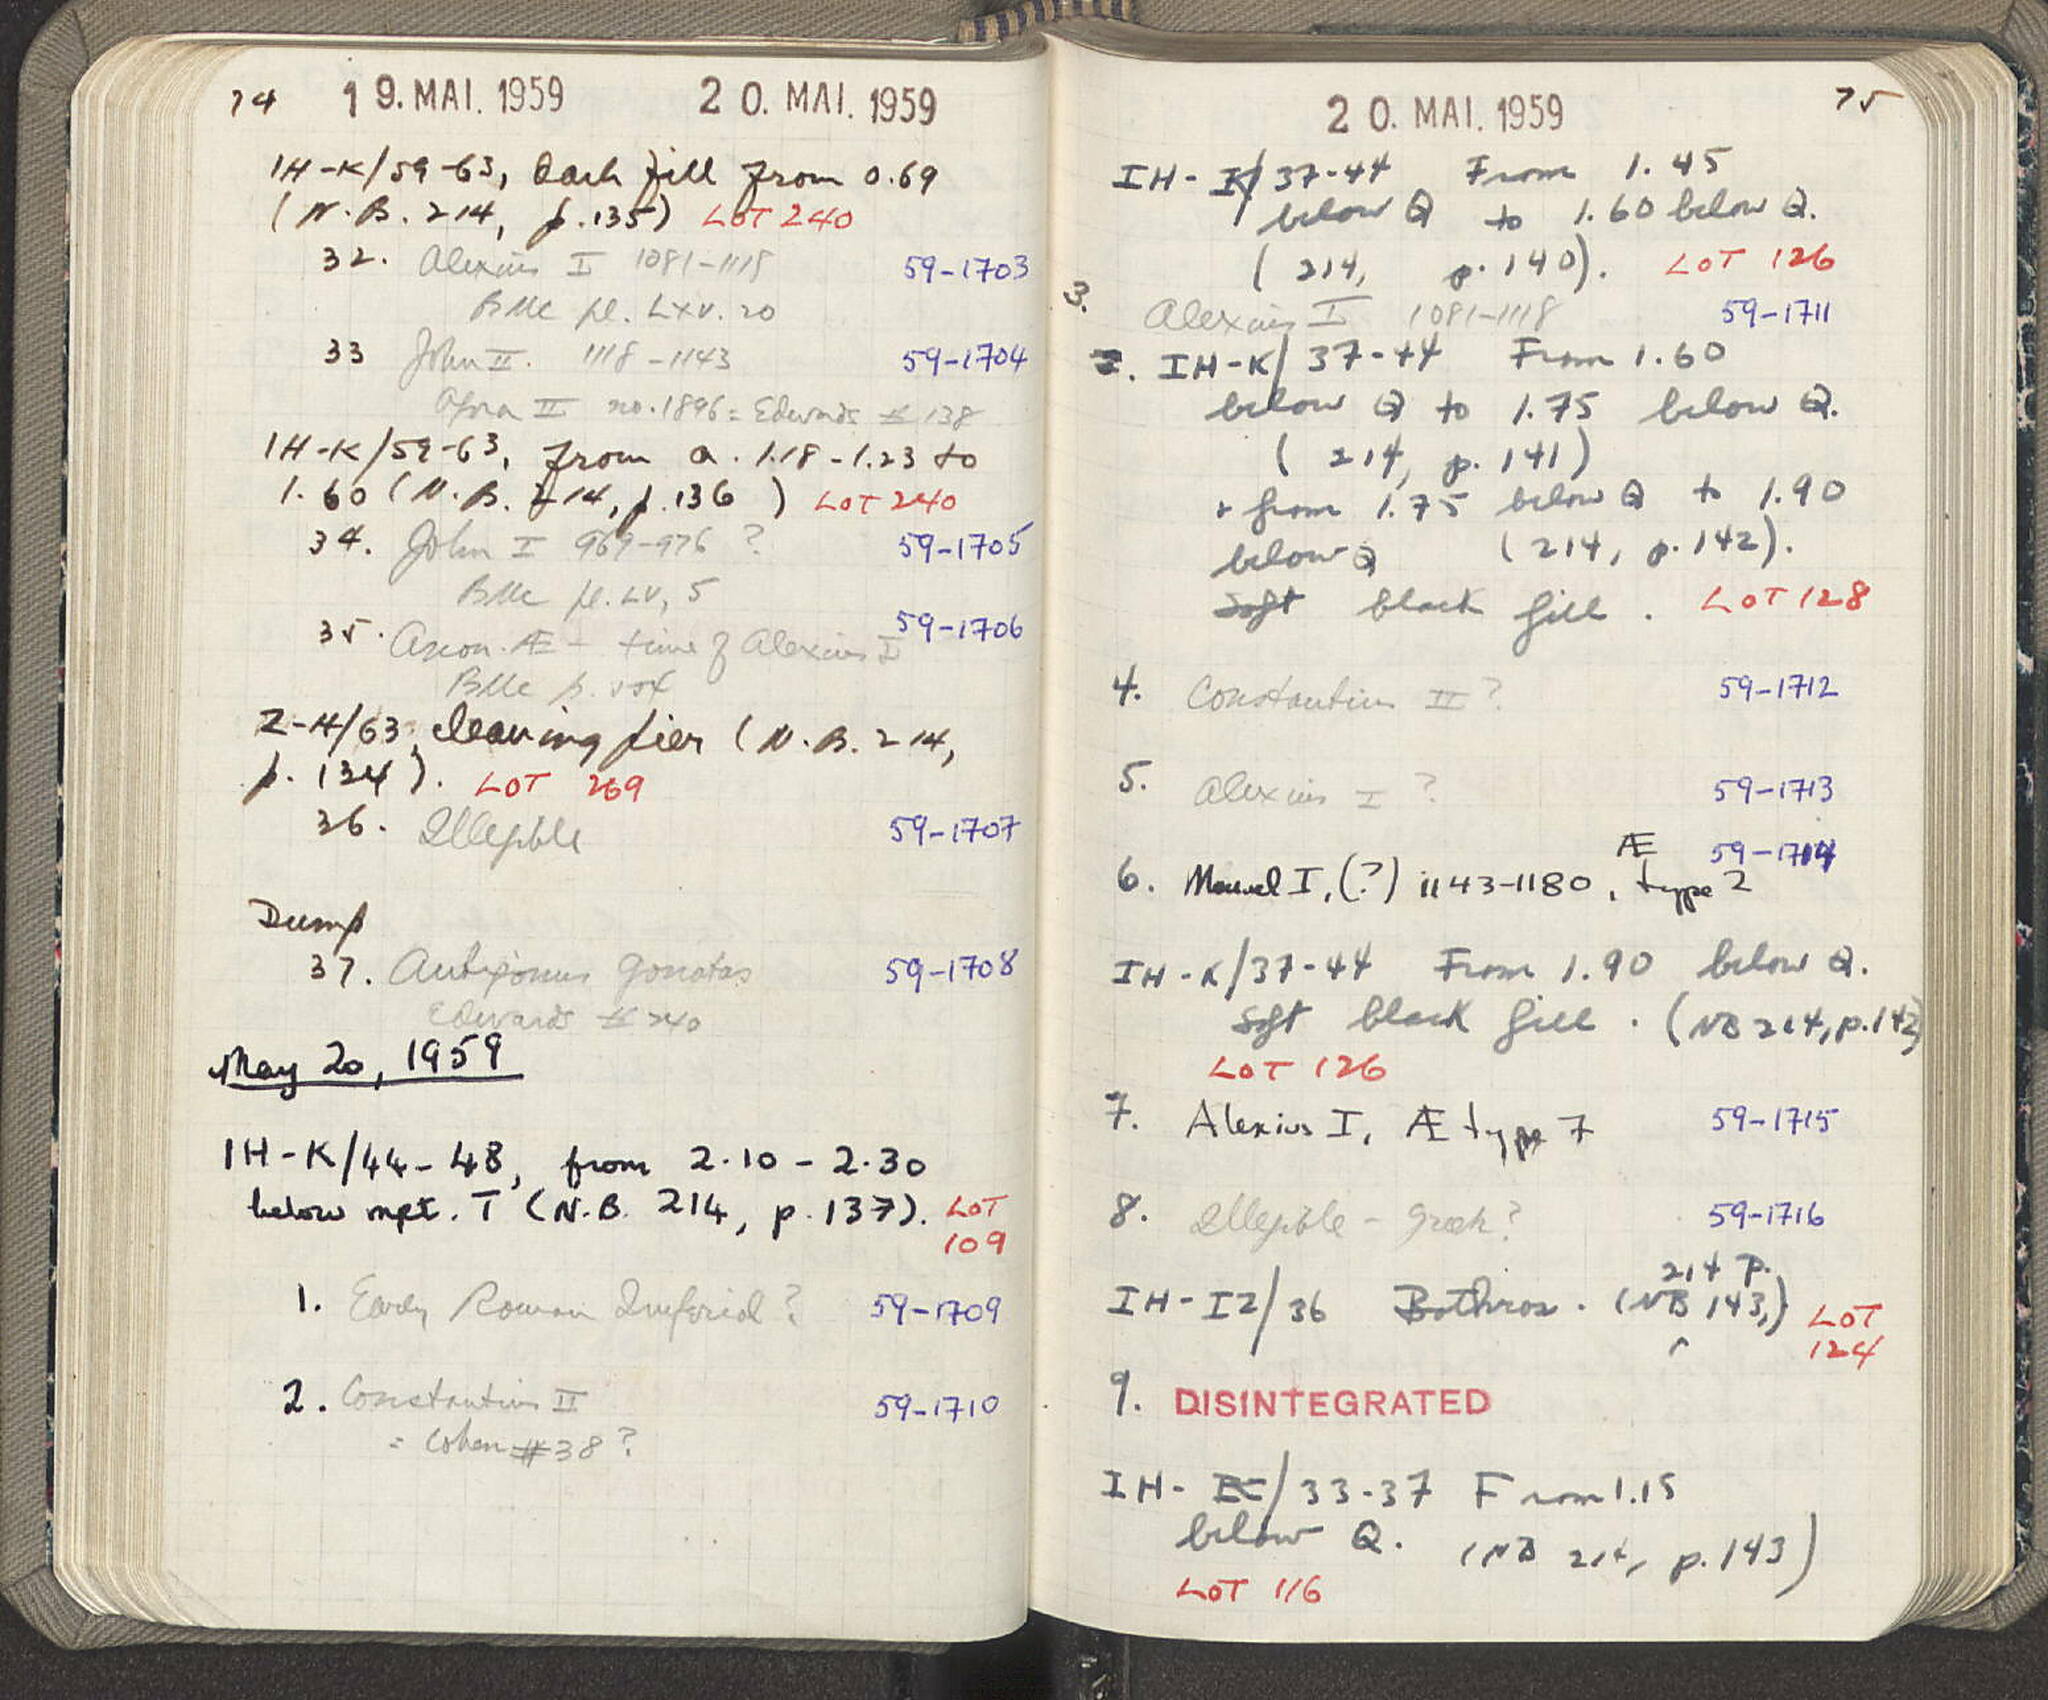 74 19. MAI. 1959 20. MAI. 1959
IH-K/59-63, dark fill from 0.69
(N.B. 214, p.135) LOT 240
32. Alexius I 1081-1118 59-1703
BMC pl. LXV. 20
33 John II. 1118-1143 59-1704
Agora II no. 1896 = Edwards # 138
IH-K/59-63, from a. 1.18-1.23 to
1.60 (N.B. 214, p.136 ) LOT 240
34. John I 969-976 ? 59-1705
BMC pl. LV, 5
35. Anon. Æ - time of Alexius I 59-1706
BMC p.
Z-H/63, cleaning pier (N.B. 214,
p. 134). LOT 269
36. Illegible 59-1707
Dump
37. Antigonus Gonatas 59-1708
Edwards # 240
May 20, 1959
IH-K/44-48, from 2.10 - 2.30
below mpt. T (N.B. 214, p. 137). LOT
109
1. Early Roman Imperial ? 59-1709
2. Constantius II 59-1710
= Cohen #38 ?
20. MAI. 1959 75
IH-K/37-44 From 1.45
below Q to 1.60 below Q.
( 214, p. 140). LOT 126
3. Alexius I 1081-1118 59-1711
IH-K/ 37-44 From 1.60
below Q to 1.75 below Q.
( 214, p. 141)
+ from 1.75 below Q to 1.90
below Q (214, p. 142).
Soft black fill . LOT 128
4. Constantius II ? 59-1712
5. Alexius I ? 59-1713
Æ 59-1714
6. Manuel I, (?) 1143-1180, type 2
IH-K/37-44 From 1.90 below Q.
Soft black fill . (NB 214, p.142)
LOT 126
7. Alexius I, Æ type 7 59-1715
8. Illegible - Greek? 59-1716
214 p.
IH-IZ/36 Bothros. (NB 143,) LOT
124
9. DISINTEGRATED
IH- /33-37 From 1.15
below Q. (NB 214, p. 143)
LOT 116